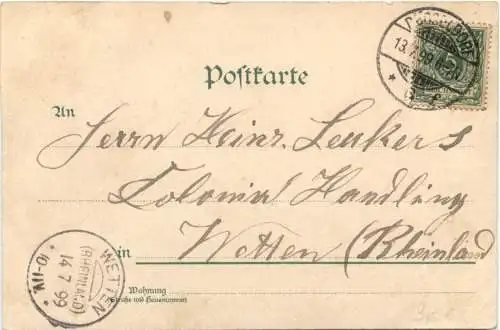 Postkarte
13.7.99
An
Herrn Heinr. Leukers
Colonial Handling
in Wetten (Rheinland
WETTEN
(RHEINLAND)
14.7.99
10-11V.
Wohnung
(Straße und Hausnummer)